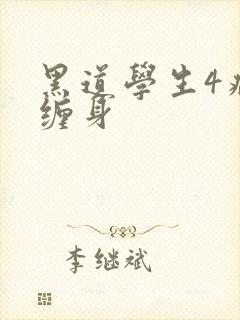 黑道學生4
缠身
李继斌